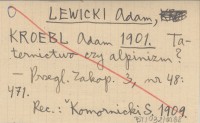 O LEWICKI Adam,
KROEBL Adam 1901. Ta-
ternictwo czy alpinizm?
— Przegl. Zakop. 3, nr 48:
471.
Rec.: Komornicki S. 1909.